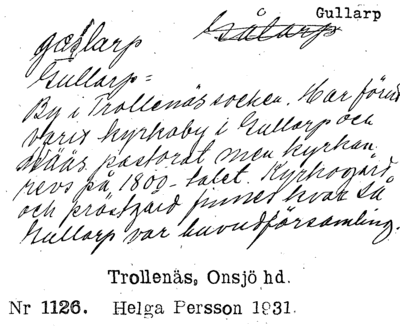 Gullarp
gøslarp
Gullarp =
By i Trollenäs socken. Har förut
varit kyrkoby i Gullarp och
Näås pastorat men kyrkan
revs på 1800-talet. Kyrkogård
och prästgård finnes kvar så
Gullarp var huvudförsamling.
Trollenäs, Onsjö hd.
Nr 1126. Helga Persson 1931.